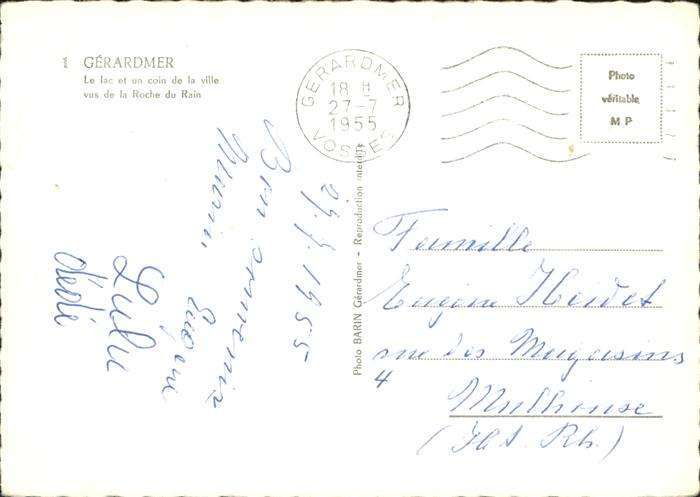 1 GÉRARDMER
Le lac et un coin de la ville
vus de la Roche du Rain
GERARDMER
18 H
27-7
1955
VOSGES
Photo
véritable
M P
27.7.1955
Bon souvenir
Eugène
Lulu
dédé
Photo BARIN Gérardmer - Reproduction interdite
Famille
Eugène Heidet
rue des Magasins
4
Mulhouse
(Ht. Rh.)